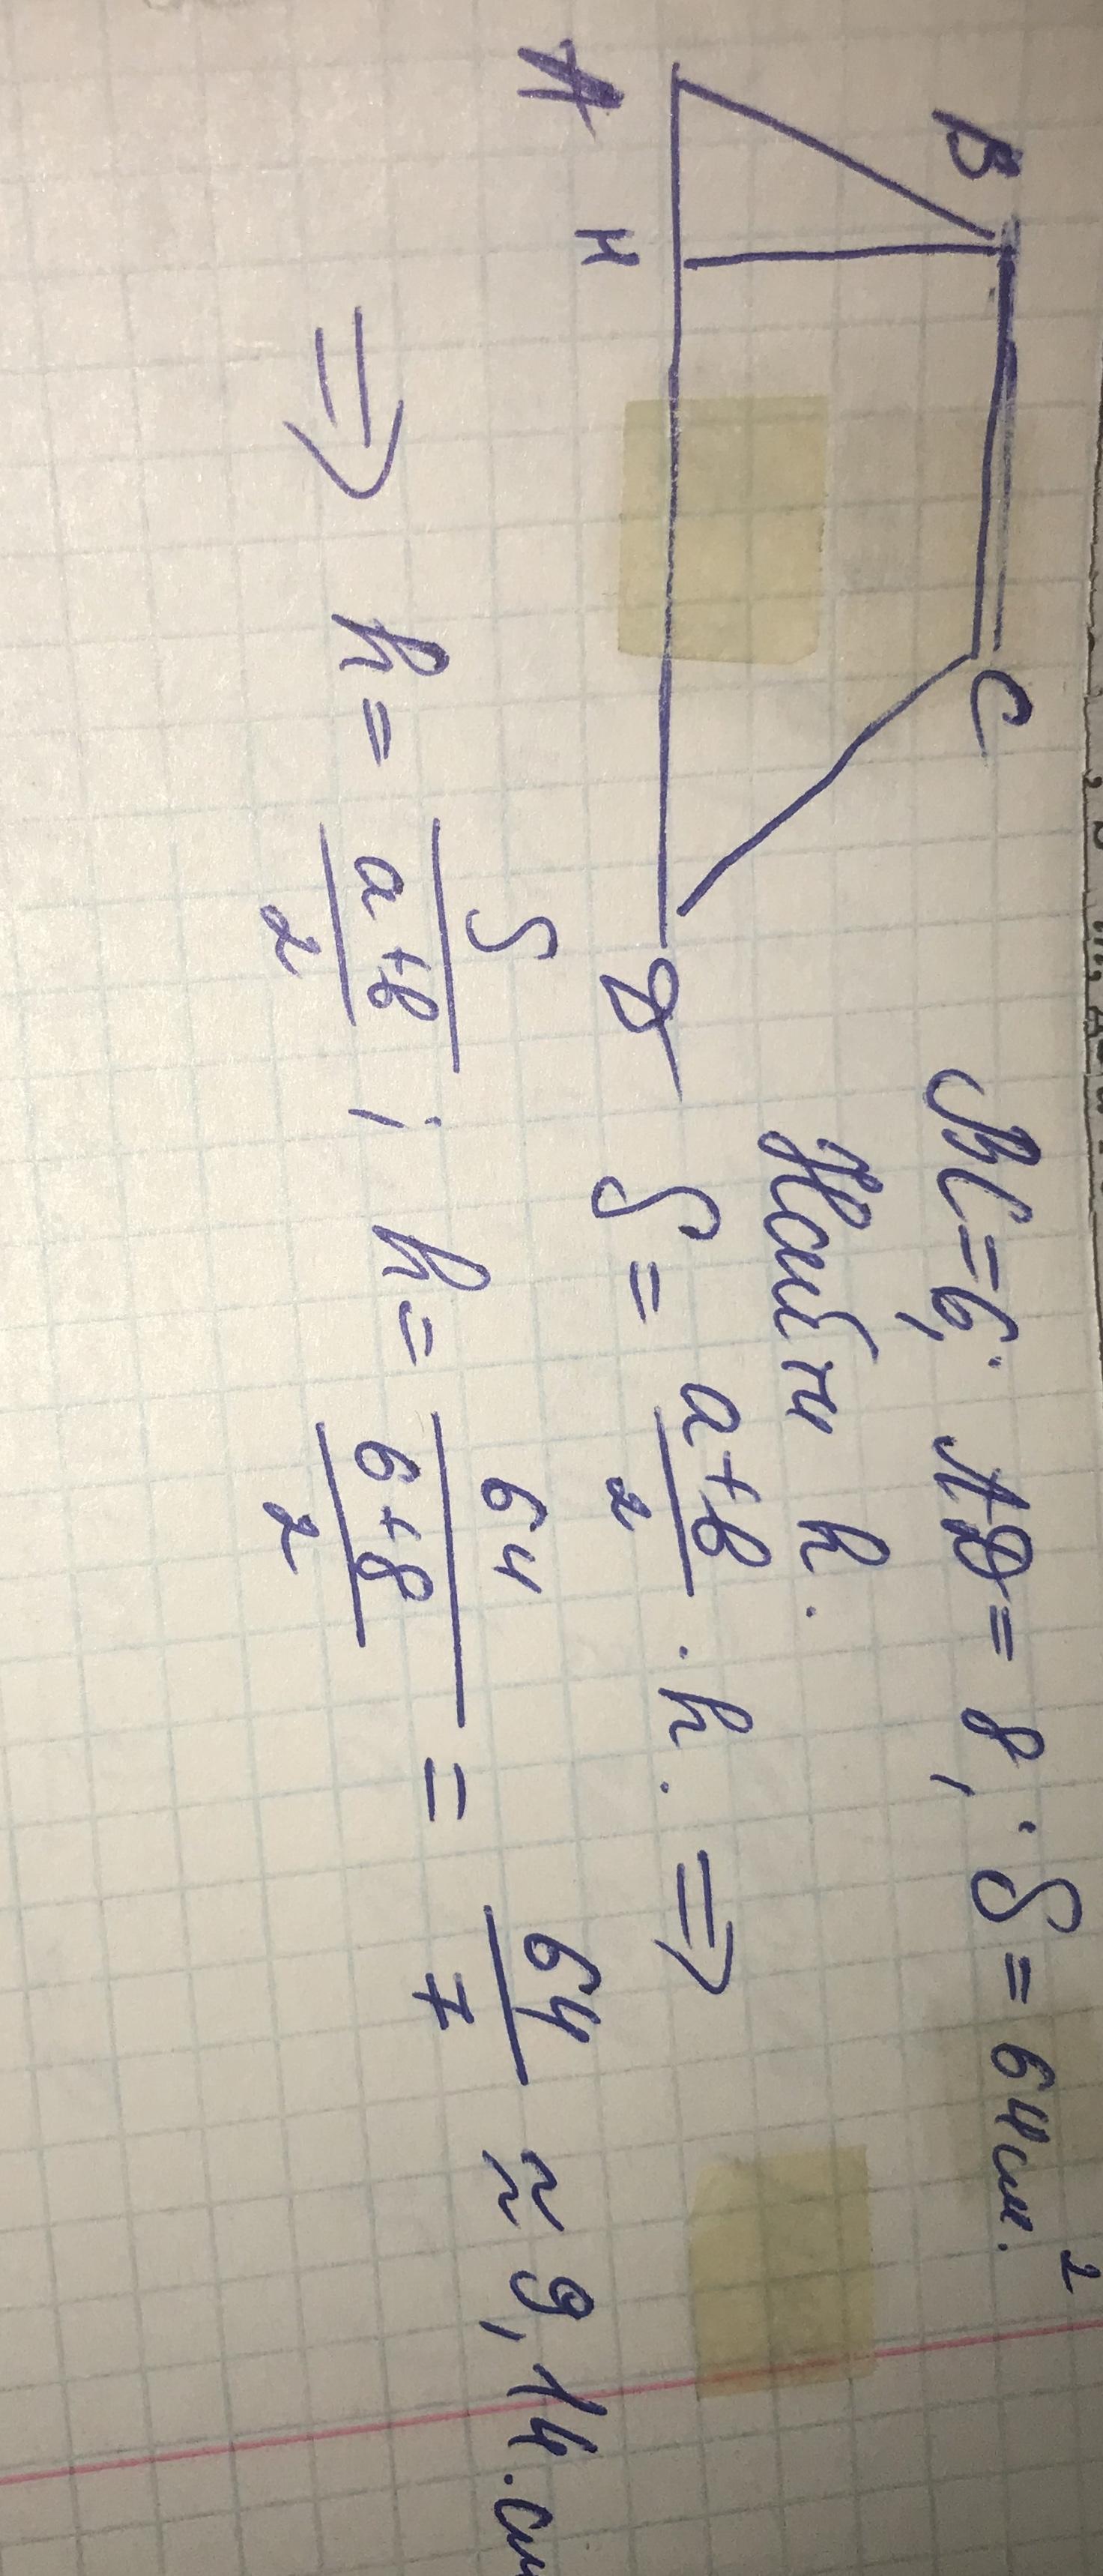 B C
A H D
BC=6; AD=8; S=64см.²
Найти h.
S = (a+b)/2 · h. ⇒
⇒ h = S/((a+b)/2); h = 64/((6+8)/2) = 64/7 ≈ 9,14.см